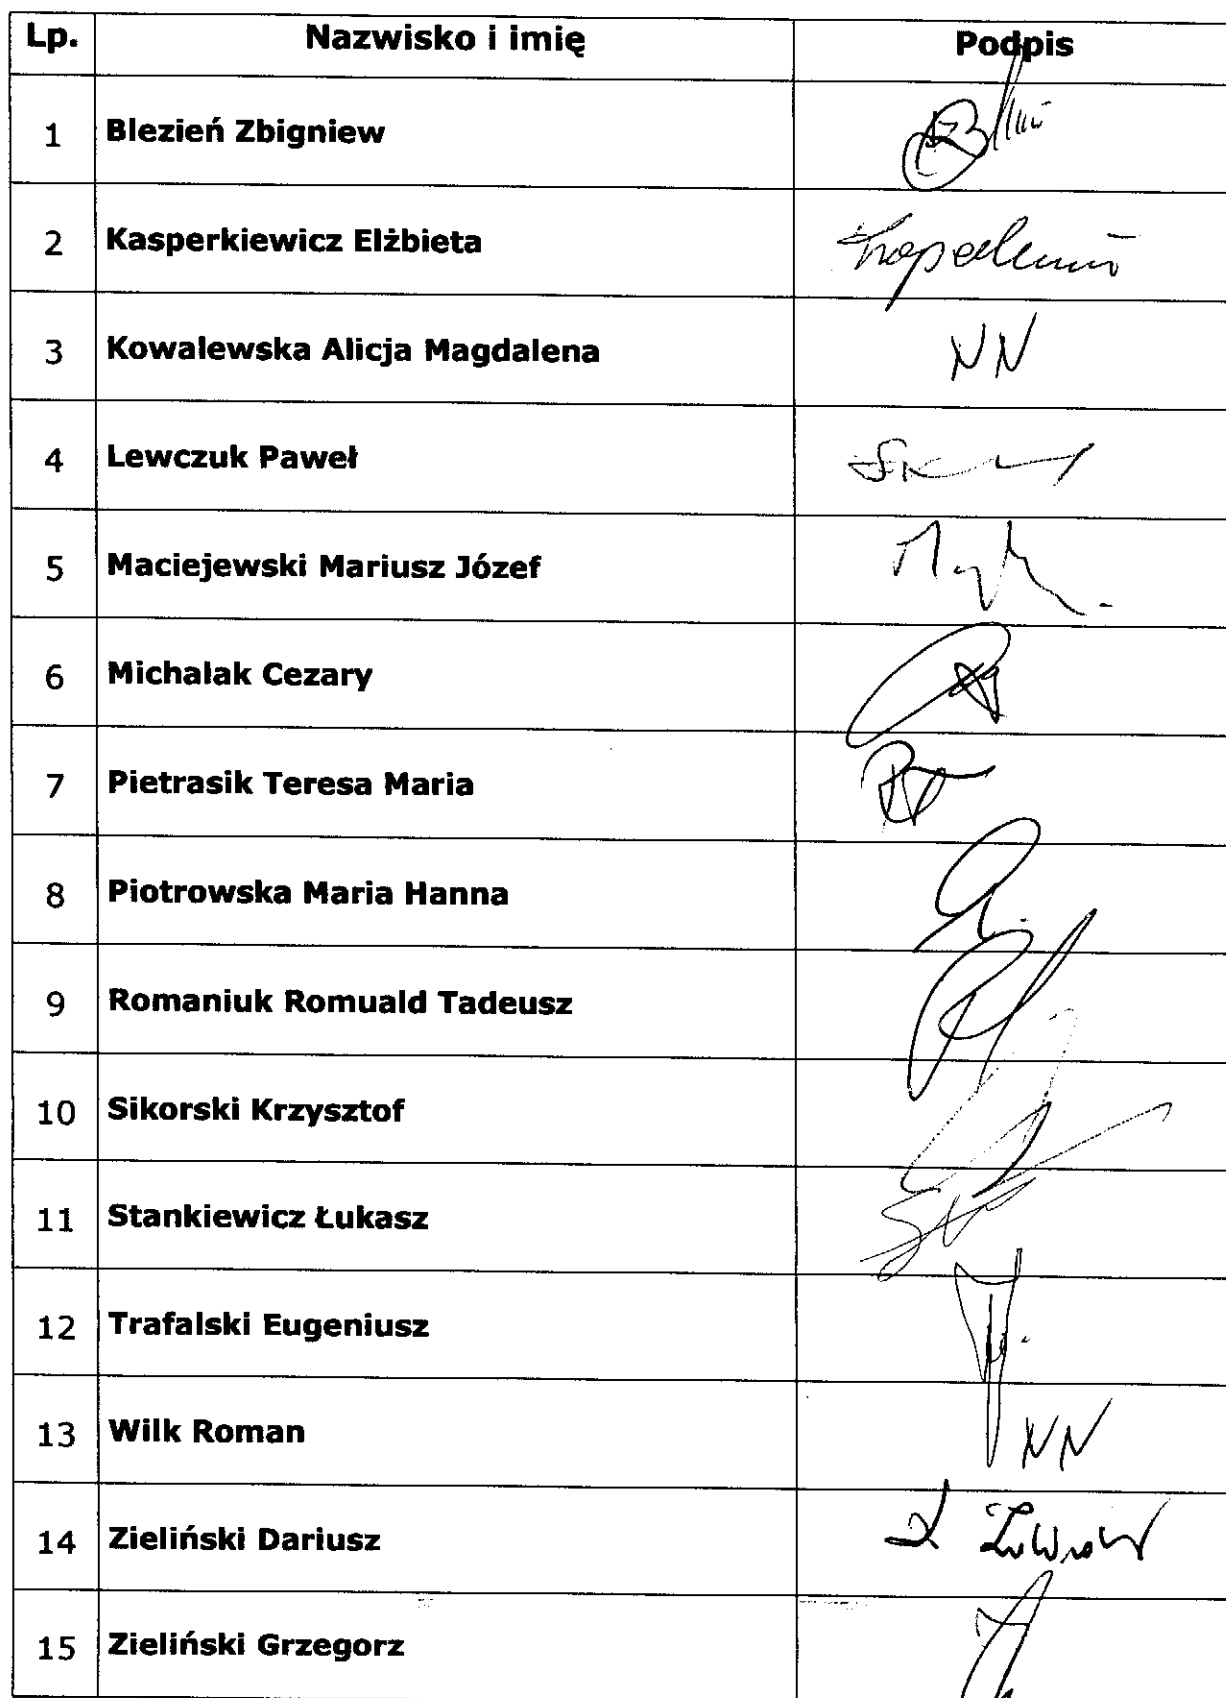 Lp. Nazwisko i imię Podpis
1 Blezień Zbigniew
2 Kasperkiewicz Elżbieta
3 Kowalewska Alicja Magdalena NN
4 Lewczuk Paweł
5 Maciejewski Mariusz Józef
6 Michalak Cezary
7 Pietrasik Teresa Maria
8 Piotrowska Maria Hanna
9 Romaniuk Romuald Tadeusz
10 Sikorski Krzysztof
11 Stankiewicz Łukasz
12 Trafalski Eugeniusz
13 Wilk Roman NN
14 Zieliński Dariusz
15 Zieliński Grzegorz